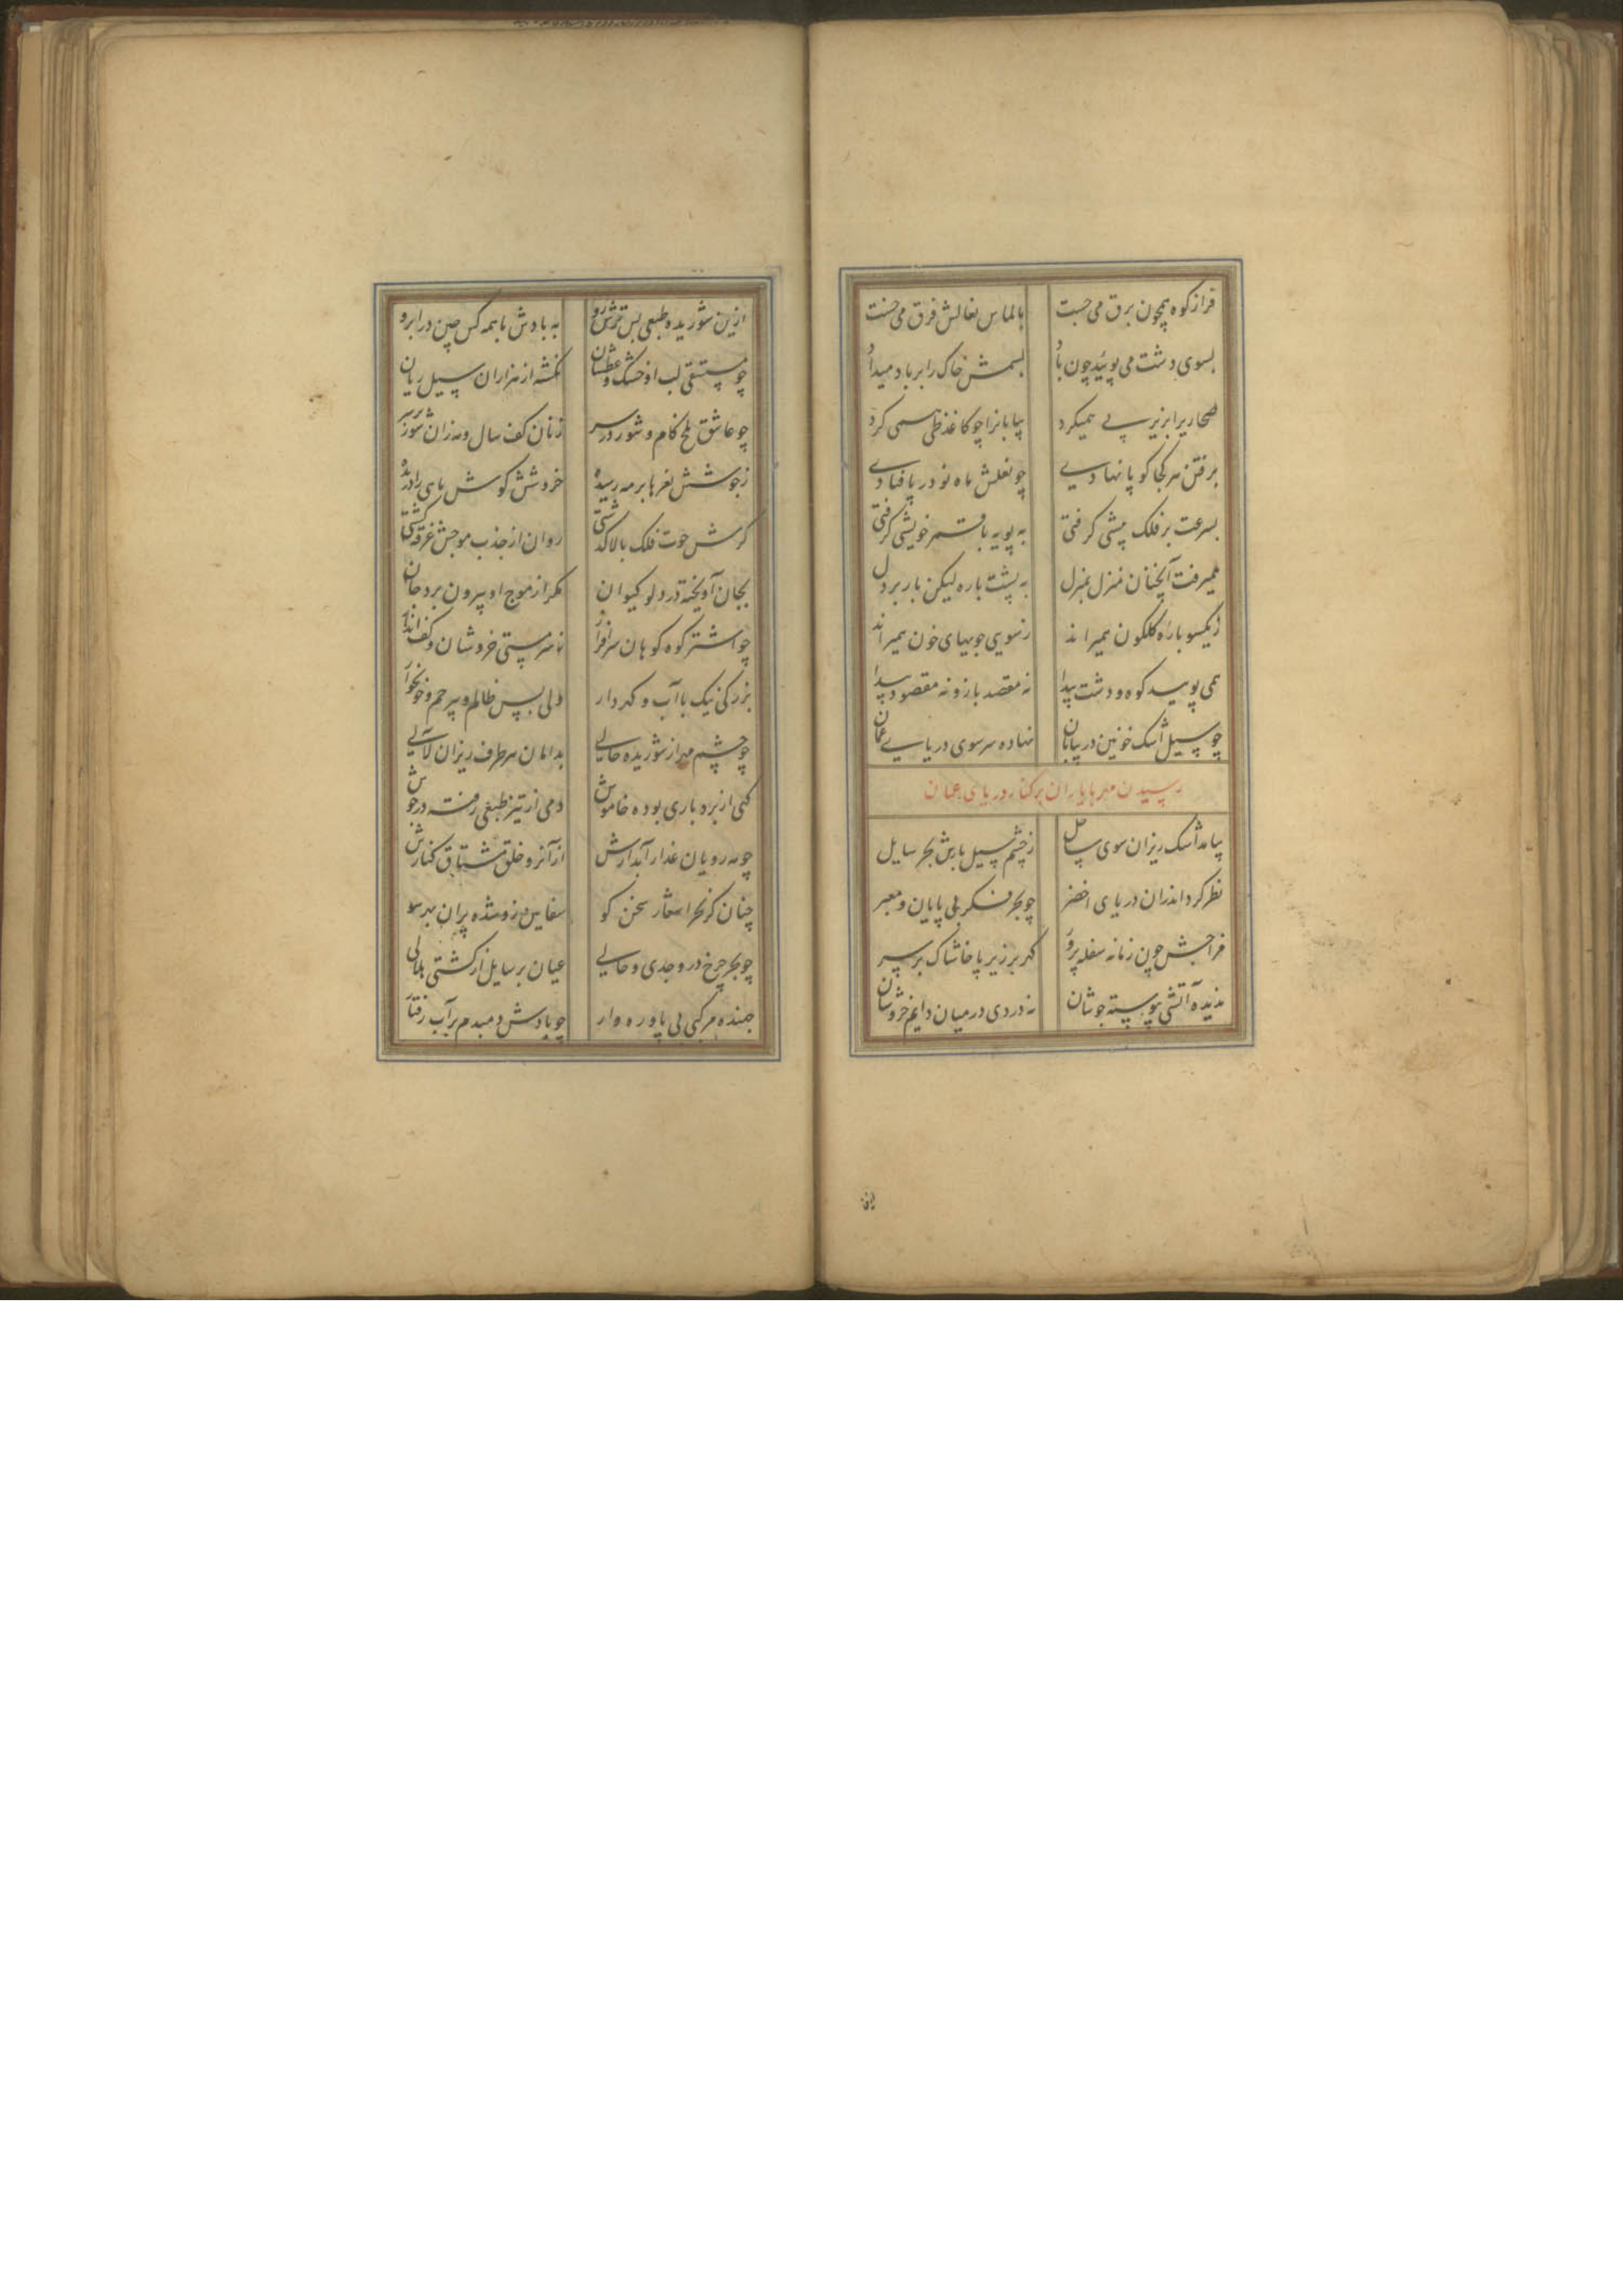 فراز کوه همچون برق می جست بالماس نعالش فرق می خست
بسوی دشت می پوئید چون باد بسمش خاک را بر باد میداد
صحاریرا بزیر پی همیکرد بیابانرا چو کاغذ طی همی کرد
برفتن هر کجا کو پا نهادی چو نعلش ماه نو در پا فتادی
بسرعت بر فلک پیشی گرفتی به پویه با قمر خویشی گرفتی
همیرفت آنچنان منزل بمنزل به پشت باره لیکن بار بر دل
ز یکسو باره گلگون همیراند ز سویی جویهای خون همیراند
همی پویید کوه و دشت پیدا نه مقصد بازو نه مقصود پیدا
چو سیل اشک خونین در بیابان نهاده سر سوی دریای عمان
رسیدن مهر با یاران بر کنار دریای عمان
بیامد اشک ریزان سوی ساحل ز چشم سیل بارش بحر سایل
نظر کرد اندران دریای اخضر چو بحر فکر بی پایان و معبر
مزاجش چون زمانه سفله پرور گهر بر زیر پا خاشاک بر سر
ندیده آتشی پیوسته جوشان نه دردی در میان دایم خروشان
ازین شوریده طبعی بس ترش رو به بادش با همه کس چین در ابرو
چو مستسقی لب او خشک و عطشان نگشته از هزاران سیل ریان
چو عاشق تلخ کام و شور در سر زنان کف سال و مه زان شور بر سر
ز جوشش نعرها بر مه رسیده خروشش گوش ماهی را دریده
گرش حوت فلک بالا گذشتی روان از جذب موجش غرقه گشتی
بجان آویخته در دلو کیوان مگر از موج او بیرون برد جان
چو اشتر کوه کوهان سرافراز ز سرمستی خروشان و کف انداز
بزرگی نیک با آب و گهردار ولی بس ظالم و بیرحم و خونخوار
چو چشم مهر از شوریده حالی بدامان هر طرف ریزان لآلی
گهی از بردباری بوده خاموش دمی از تیز طبعی رفته در جوش
چو مه رویان عذار آبدارش از آنرو خلق مشتاق کنارش
چنان کز بحر اشعار سخن گو سفاین زو شده پران بهر سو
چو بحر چرخ در وجدی و حالی عیان بر سایل از کشتی هلالی
جهنده مرکبی بی پا و ره وار چو بادش دمبدم بر آب رفتار